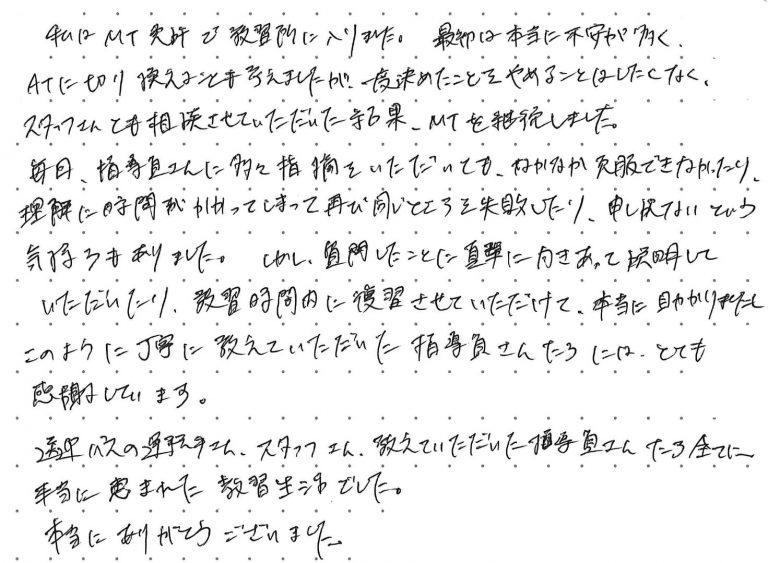 私は MT免許で教習所に入りました。 最初は本当に不安が多く、
ATに切り換えることも考えましたが、一度決めたことをやめることはしたくなく、
スタッフさんとも相談させていただいた結果、MTを継続しました。
毎日、指導員さんに多々指摘をいただいても、なかなか克服できなかったり、
理解に時間がかかってしまって再び同じところを失敗したり、申し訳ないという
気持ちもありました。 しかし、質問したことに真摯に向きあって説明して
いただいたり、教習時間内に復習させていただけて、本当に助かりました。
このように丁寧に教えていただいた指導員さんたちには、とても
感謝しています。
送迎バスの運転手さん、スタッフさん、教えていただいた指導員さんたち全てに
本当に恵まれた教習生活でした。
本当にありがとうございました。